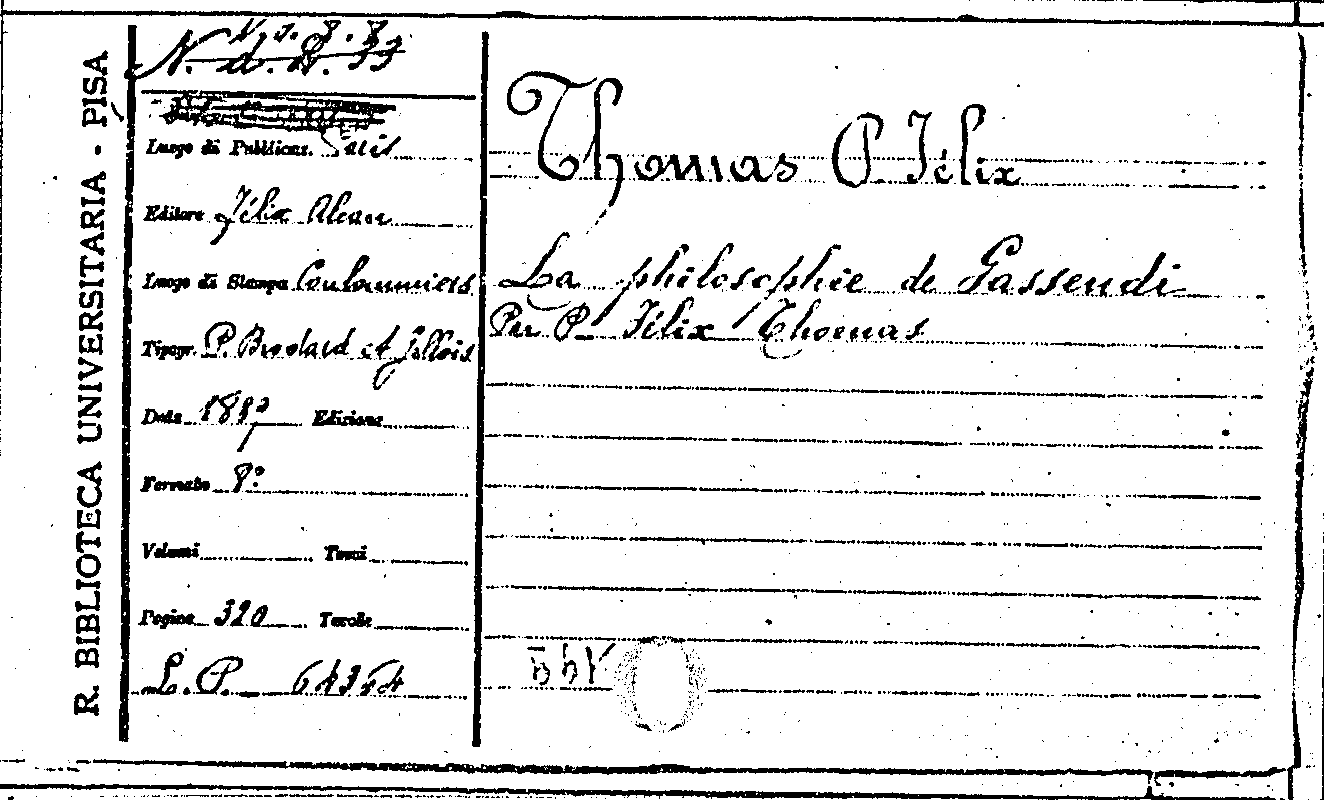 R. BIBLIOTECA UNIVERSITARIA - PISA
N. d. 8. 33
Luogo di Pubblicaz. Paris
Editore Félix Alcan
Luogo di Stampa Coulommiers
Tipogr. P. Brodard et Gallois
Data 1889 Edizione
Formato 8º
Volumi Tomi
Pagine 320 Tavole
L. P.
Thomas P. Félix
La philosophie de Gassendi
Par P. Félix Thomas